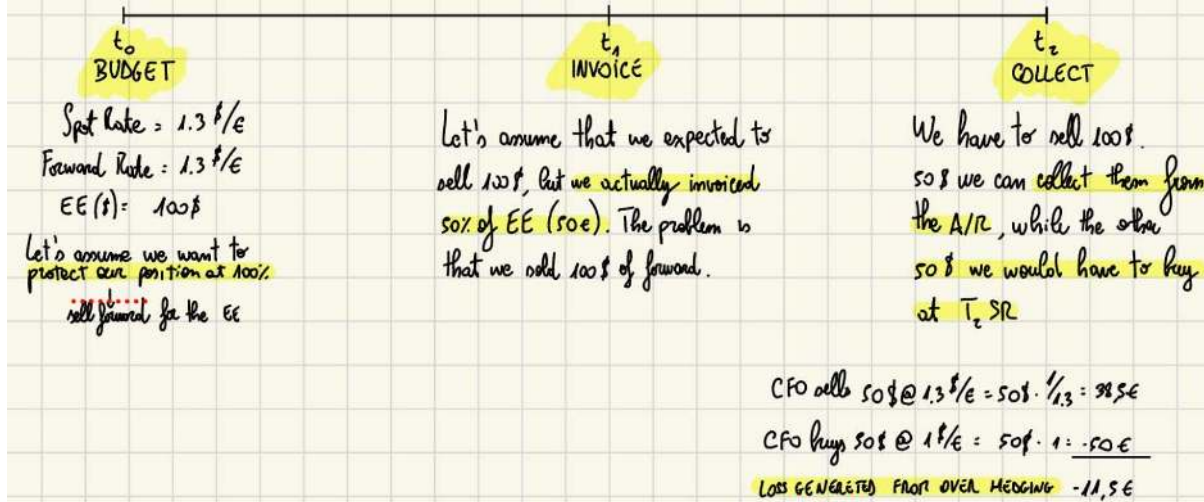 t₀
BUDGET
Spot Rate = 1.3 $/€
Forward Rate = 1.3 $/€
EE ($) = 100$
Let's assume we want to
protect our position at 100%
sell forward for the EE
t₁
INVOICE
Let's assume that we expected to
sell 100$, but we actually invoiced
50% of EE (50€). The problem is
that we sold 100$ of forward.
t₂
COLLECT
We have to sell 100$.
50$ we can collect them from
the A/R, while the other
50$ we would have to buy
at T₂ SR
CFO sells 50$ @ 1.3 $/€ = 50$ · 1/1.3 = 38,5€
CFO buys 50$ @ 1 $/€ = 50$ · 1 = -50€
LOSS GENERETED FROM OVER HEDGING -11,5€